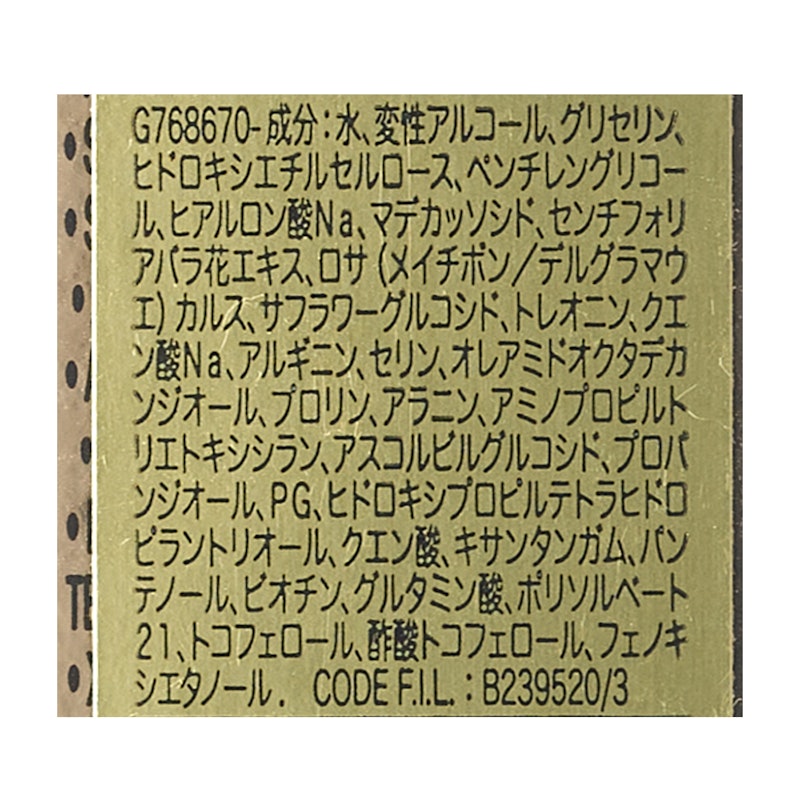 G768670-成分：水、変性アルコール、グリセリン、
ヒドロキシエチルセルロース、ペンチレングリコー
ル、ヒアルロン酸Na、マデカッソシド、センチフォリ
アバラ花エキス、ロサ（メイチボン／デルグラマウ
エ）カルス、サフラワーグルコシド、トレオニン、クエ
ン酸Na、アルギニン、セリン、オレアミドオクタデカ
ンジオール、プロリン、アラニン、アミノプロピルト
リエトキシシラン、アスコルビルグルコシド、プロパ
ンジオール、PG、ヒドロキシプロピルテトラヒドロ
ピラントリオール、クエン酸、キサンタンガム、パン
テノール、ビオチン、グルタミン酸、ポリソルベート
21、トコフェロール、酢酸トコフェロール、フェノキ
シエタノール． CODE F.I.L.：B239520/3